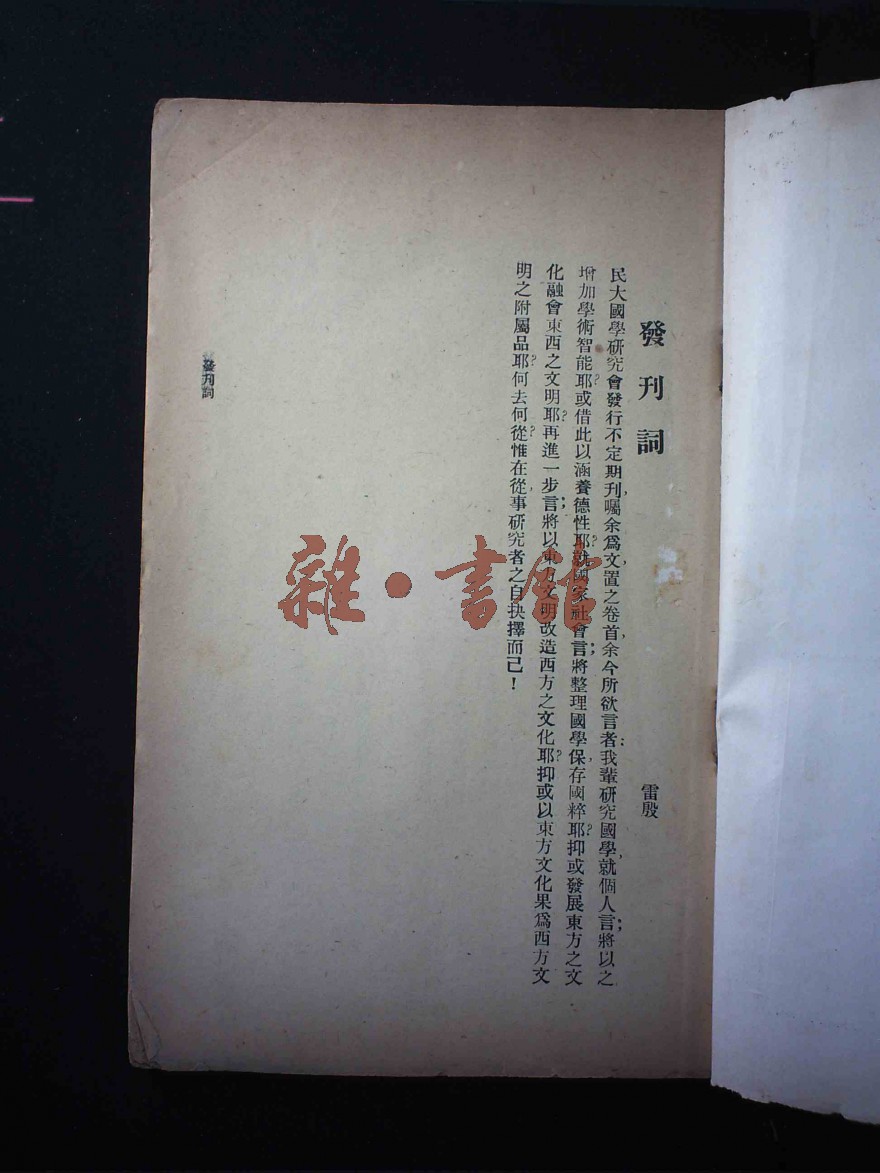 發刊詞
雷殷
民大國學研究會發行不定期刊,囑余爲文,置之卷首,余今所欲言者:我輩研究國學,就個人言;將以之
增加學術智能耶?或借此以涵養德性耶?就國家社會言;將整理國學,保存國粹耶?抑或發展東方之文
化融會東西之文明耶?再進一步言;將以東方文明改造西方之文化耶?抑或以東方文化果爲西方文
明之附屬品耶?何去何從?惟在從事研究者之自抉擇而已!
發刊詞
雜·書館